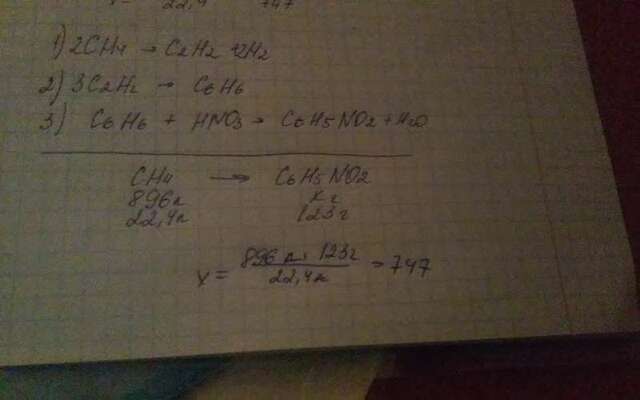 22,4 747
1) 2CH4 → C2H2 + 2H2
2) 3C2H2 → C6H6
3) C6H6 + HNO3 → C6H5NO2 + H2O
CH4 → C6H5NO2
896л xг
22,4л 123г
x = 896л · 123г / 22,4л = 747